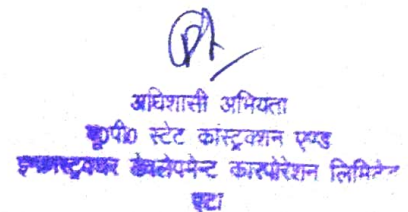 अधिशासी अभियंता
यू0पी0 स्टेट कांस्ट्रक्शन एण्ड
इन्फ्रास्ट्रक्चर डेवलेपमेन्ट कारपोरेशन लिमिटेड
एटा